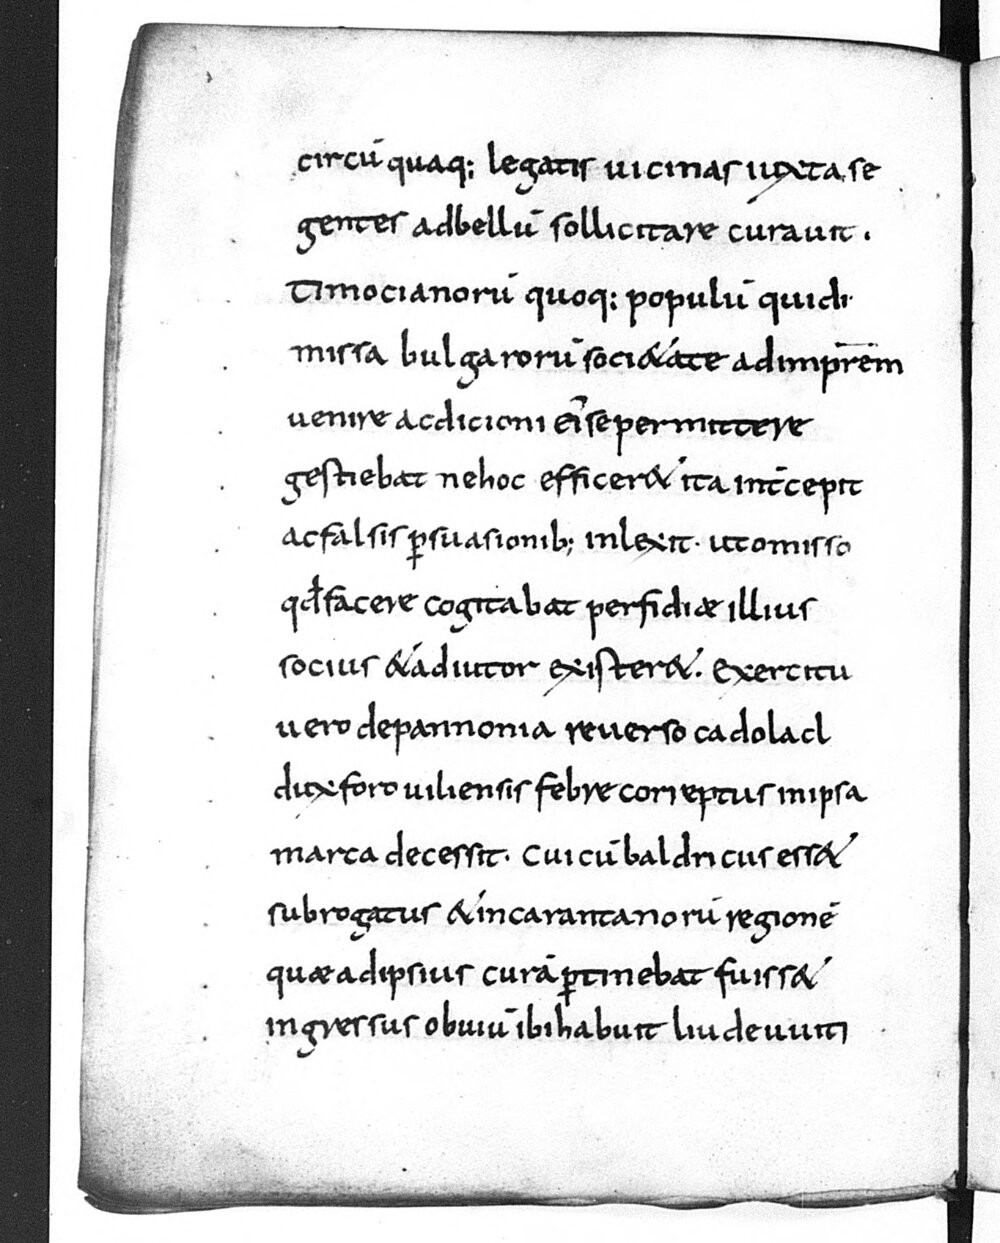 circū quaq; legatis uicinas iuxta se
gentes adbellū sollicitare curauit .
Timocianorū quoq; populū quidi
missa bulgarorū soci&ate adimp̄rēm
uenire acdicioni ei᾽ se permittere
gestiebat nehoc efficer& ita int̄cepit
acfalsis ꝑsuasionib; inlexit · utomisso
qđ facere cogitabat perfidiæ illius
socius &adiutor exister& . Exercitu
uero depannonia reuerso cadolach
dux foro iuliensis febre correptus inipsa
marca decessit · Cuicū baldricus ess&
subrogatus &incarantanorū regionē
quæ adipsius curā ꝑtinebat fuiss&
ingressus obuiū ibihabuit liudeuuiti